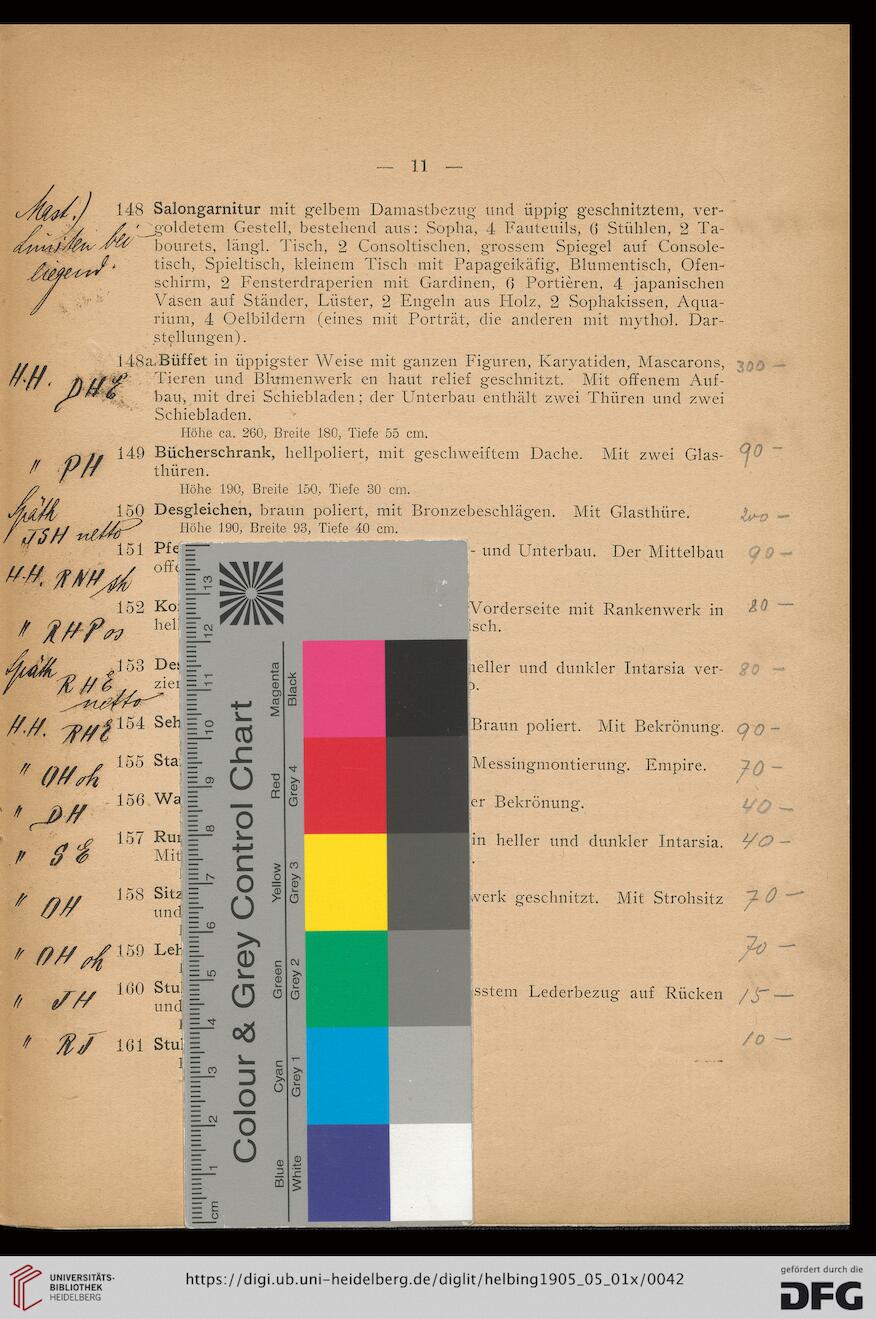 — 11 —
148 Salongarnitur mit gelbem Damastbezug und üppig geschnitztem, ver-
goldetem Gestell, bestehend aus: Sopha, 4 Fauteuils, 6 Stühlen, 2 Ta-
bourets, längl. Tisch, 2 Consoltischen, grossem Spiegel auf Console-
tisch, Spieltisch, kleinem Tisch mit Papageikäfig, Blumentisch, Ofen-
schirm, 2 Fensterdraperien mit Gardinen, 6 Portièren, 4 japanischen
Vasen auf Ständer, Lüster, 2 Engeln aus Holz, 2 Sophakissen, Aqua-
rium, 4 Oelbildern (eines mit Porträt, die anderen mit mythol. Dar-
stellungen).
bei
liegend.
H.H. DHE 148a Büffet in üppigster Weise mit ganzen Figuren, Karyatiden, Mascarons, 300 —
Tieren und Blumenwerk en haut relief geschnitzt. Mit offenem Auf-
bau, mit drei Schiebladen; der Unterbau enthält zwei Thüren und zwei
Schiebladen.
Höhe ca. 260, Breite 180, Tiefe 55 cm.
" PH 149 Bücherschrank, hellpoliert, mit geschweiftem Dache. Mit zwei Glas- 90 —
thüren.
Höhe 190, Breite 150, Tiefe 30 cm.
Späth 150 Desgleichen, braun poliert, mit Bronzebeschlägen. Mit Glasthüre. 200 —
JSH netto Höhe 190, Breite 93, Tiefe 40 cm.
H.H. RNH 151 Pfe - und Unterbau. Der Mittelbau 90 —
offe
" 152 Ko Vorderseite mit Rankenwerk in 80 —
hel isch.
Späth RHE 153 Des heller und dunkler Intarsia ver- 80 —
netto zier
H.H. RHE 154 Seh Braun poliert. Mit Bekrönung. 90 —
" OH oh 155 Sta Messingmontierung. Empire. 70 —
" DH 156 Wa er Bekrönung. 40 —
" SE 157 Rur in heller und dunkler Intarsia. 40 —
Mit
" OH 158 Sitz werk geschnitzt. Mit Strohsitz 70 —
und
" OH oh 159 Leh 70 —
" JH 160 Stu sstem Lederbezug auf Rücken 15 —
und
" RJ 161 Stul 10 —
Colour & Grey Control Chart
Blue Cyan Green Yellow Red Magenta
White Grey 1 Grey 2 Grey 3 Grey 4 Black
cm 1 2 3 4 5 6 7 8 9 10 11 12 13
UNIVERSITÄTS-
BIBLIOTHEK
HEIDELBERG
https://digi.ub.uni-heidelberg.de/diglit/helbing1905_05_01x/0042
gefördert durch die
DFG